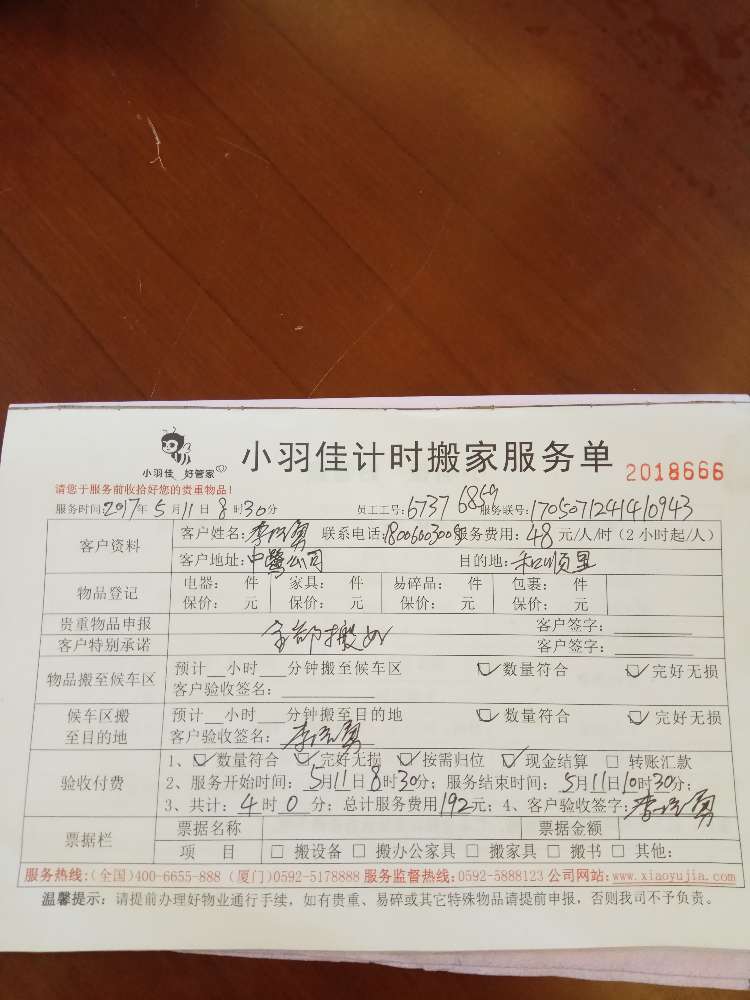 小羽佳 好管家
小羽佳计时搬家服务单 2018666
请您于服务前收拾好您的贵重物品!
服务时间2017年5月11日8时30分 员工工号:6737 6869 服务联号:1705071241410943
客户资料 客户姓名: 联系电话: 服务费用:48元/人/时(2小时起/人)
客户地址:中鹭公司 目的地:和顺里
物品登记 电器: 件 家具: 件 易碎品: 件 包裹: 件
保价: 元 保价: 元 保价: 元 保价: 元
贵重物品申报 客户签字:
客户特别承诺 全部搬 客户签字:
物品搬至候车区 预计__小时__分钟搬至候车区 ☑数量符合 ☑完好无损
客户验收签名:
候车区搬至目的地 预计__小时__分钟搬至目的地 ☑数量符合 ☑完好无损
客户验收签名:
验收付费 1、☑数量符合 ☑完好无损 ☑按需归位 ☑现金结算 □ 转账汇款
2、服务开始时间:5月11日8时30分; 服务结束时间:5月11日10时30分;
3、共计:4时0分; 总计服务费用192元; 4、客户验收签字:
票据栏 票据名称 票据金额
项 目 □ 搬设备 □ 搬办公家具 □ 搬家具 □ 搬书 □ 其他:
服务热线:(全国)400-6655-888 (厦门)0592-5178888 服务监督热线:0592-5888123 公司网站:www.xiaoyujia.com
温馨提示: 请提前办理好物业通行手续, 如有贵重、易碎或其它特殊物品请提前申报, 否则我司不予负责。